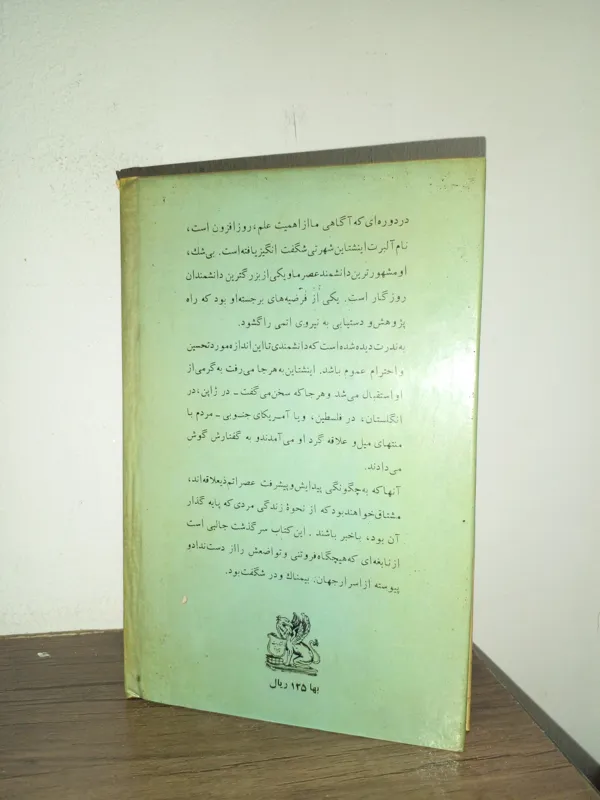 در دوره‌ای که آگاهی ما از اهمیت علم، روز افزون است،
نام آلبرت اینشتاین شهرتی شگفت انگیز یافته است. بی‌شك،
او مشهور ترین دانشمند عصر ما و یکی از بزرگترین دانشمندان
روزگار است. یکی از فرضیه‌های برجسته او بود که راه
پژوهش و دستیابی به نیروی اتمی را گشود.
به ندرت دیده شده است که دانشمندی تا این اندازه مورد تحسین
و احترام عموم باشد. اینشتاین به هر جا می‌رفت به گرمی از
او استقبال می‌شد و هر جا که سخن می‌گفت ـ در ژاپن، در
انگلستان، در فلسطین، و یا آمریکای جنوبی ـ مردم با
منتهای میل و علاقه گرد او می‌آمدند و به گفتارش گوش
می‌دادند.
آنها که به چگونگی پیدایش و پیشرفت عصر اتم ذیعلاقه‌اند،
مشتاق خواهند بود که از نحوهٔ زندگی مردی که پایه گذار
آن بود، باخبر باشند. این کتاب سرگذشت جالبی است
از نابغه‌ای که هیچگاه فروتنی و تواضعش را از دست نداد و
پیوسته از اسرار جهان، بیمناك و در شگفت بود.
بها ۱۳۵ ریال